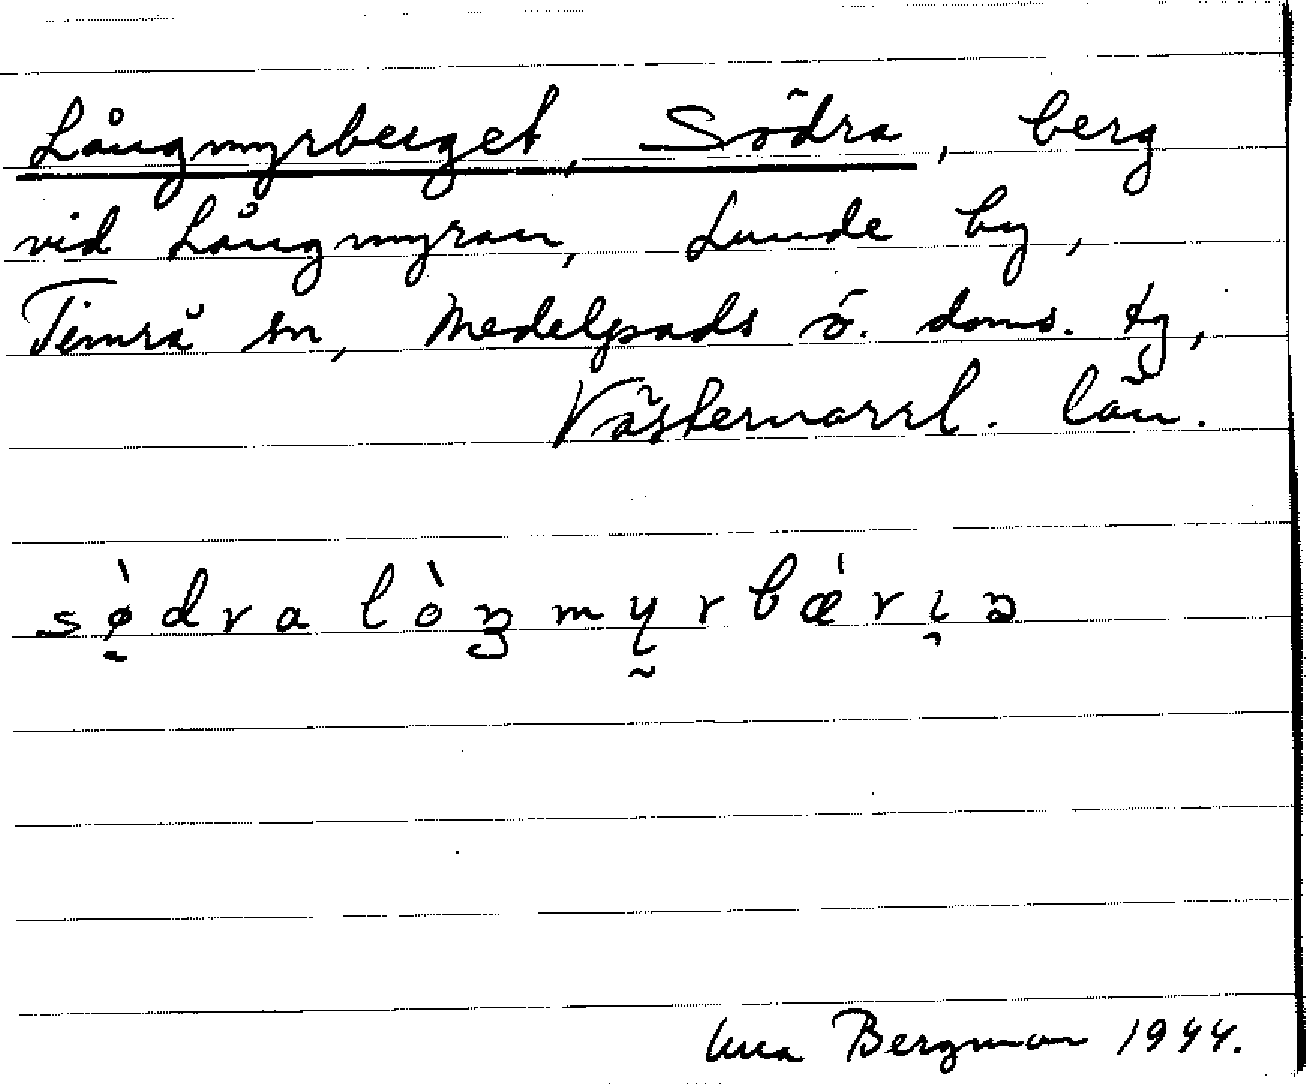 Långmyrberget, Södra, berg
vid Långmyran, Lunde by,
Timrå sn, Medelpads ö. doms. tg,
Västernorrl. län.
sø̀dra lòŋmyrbǽriə
Bergman 1944.